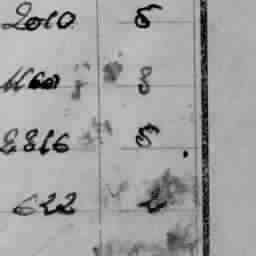 2010 5
1160 3
2816 5.
622 2